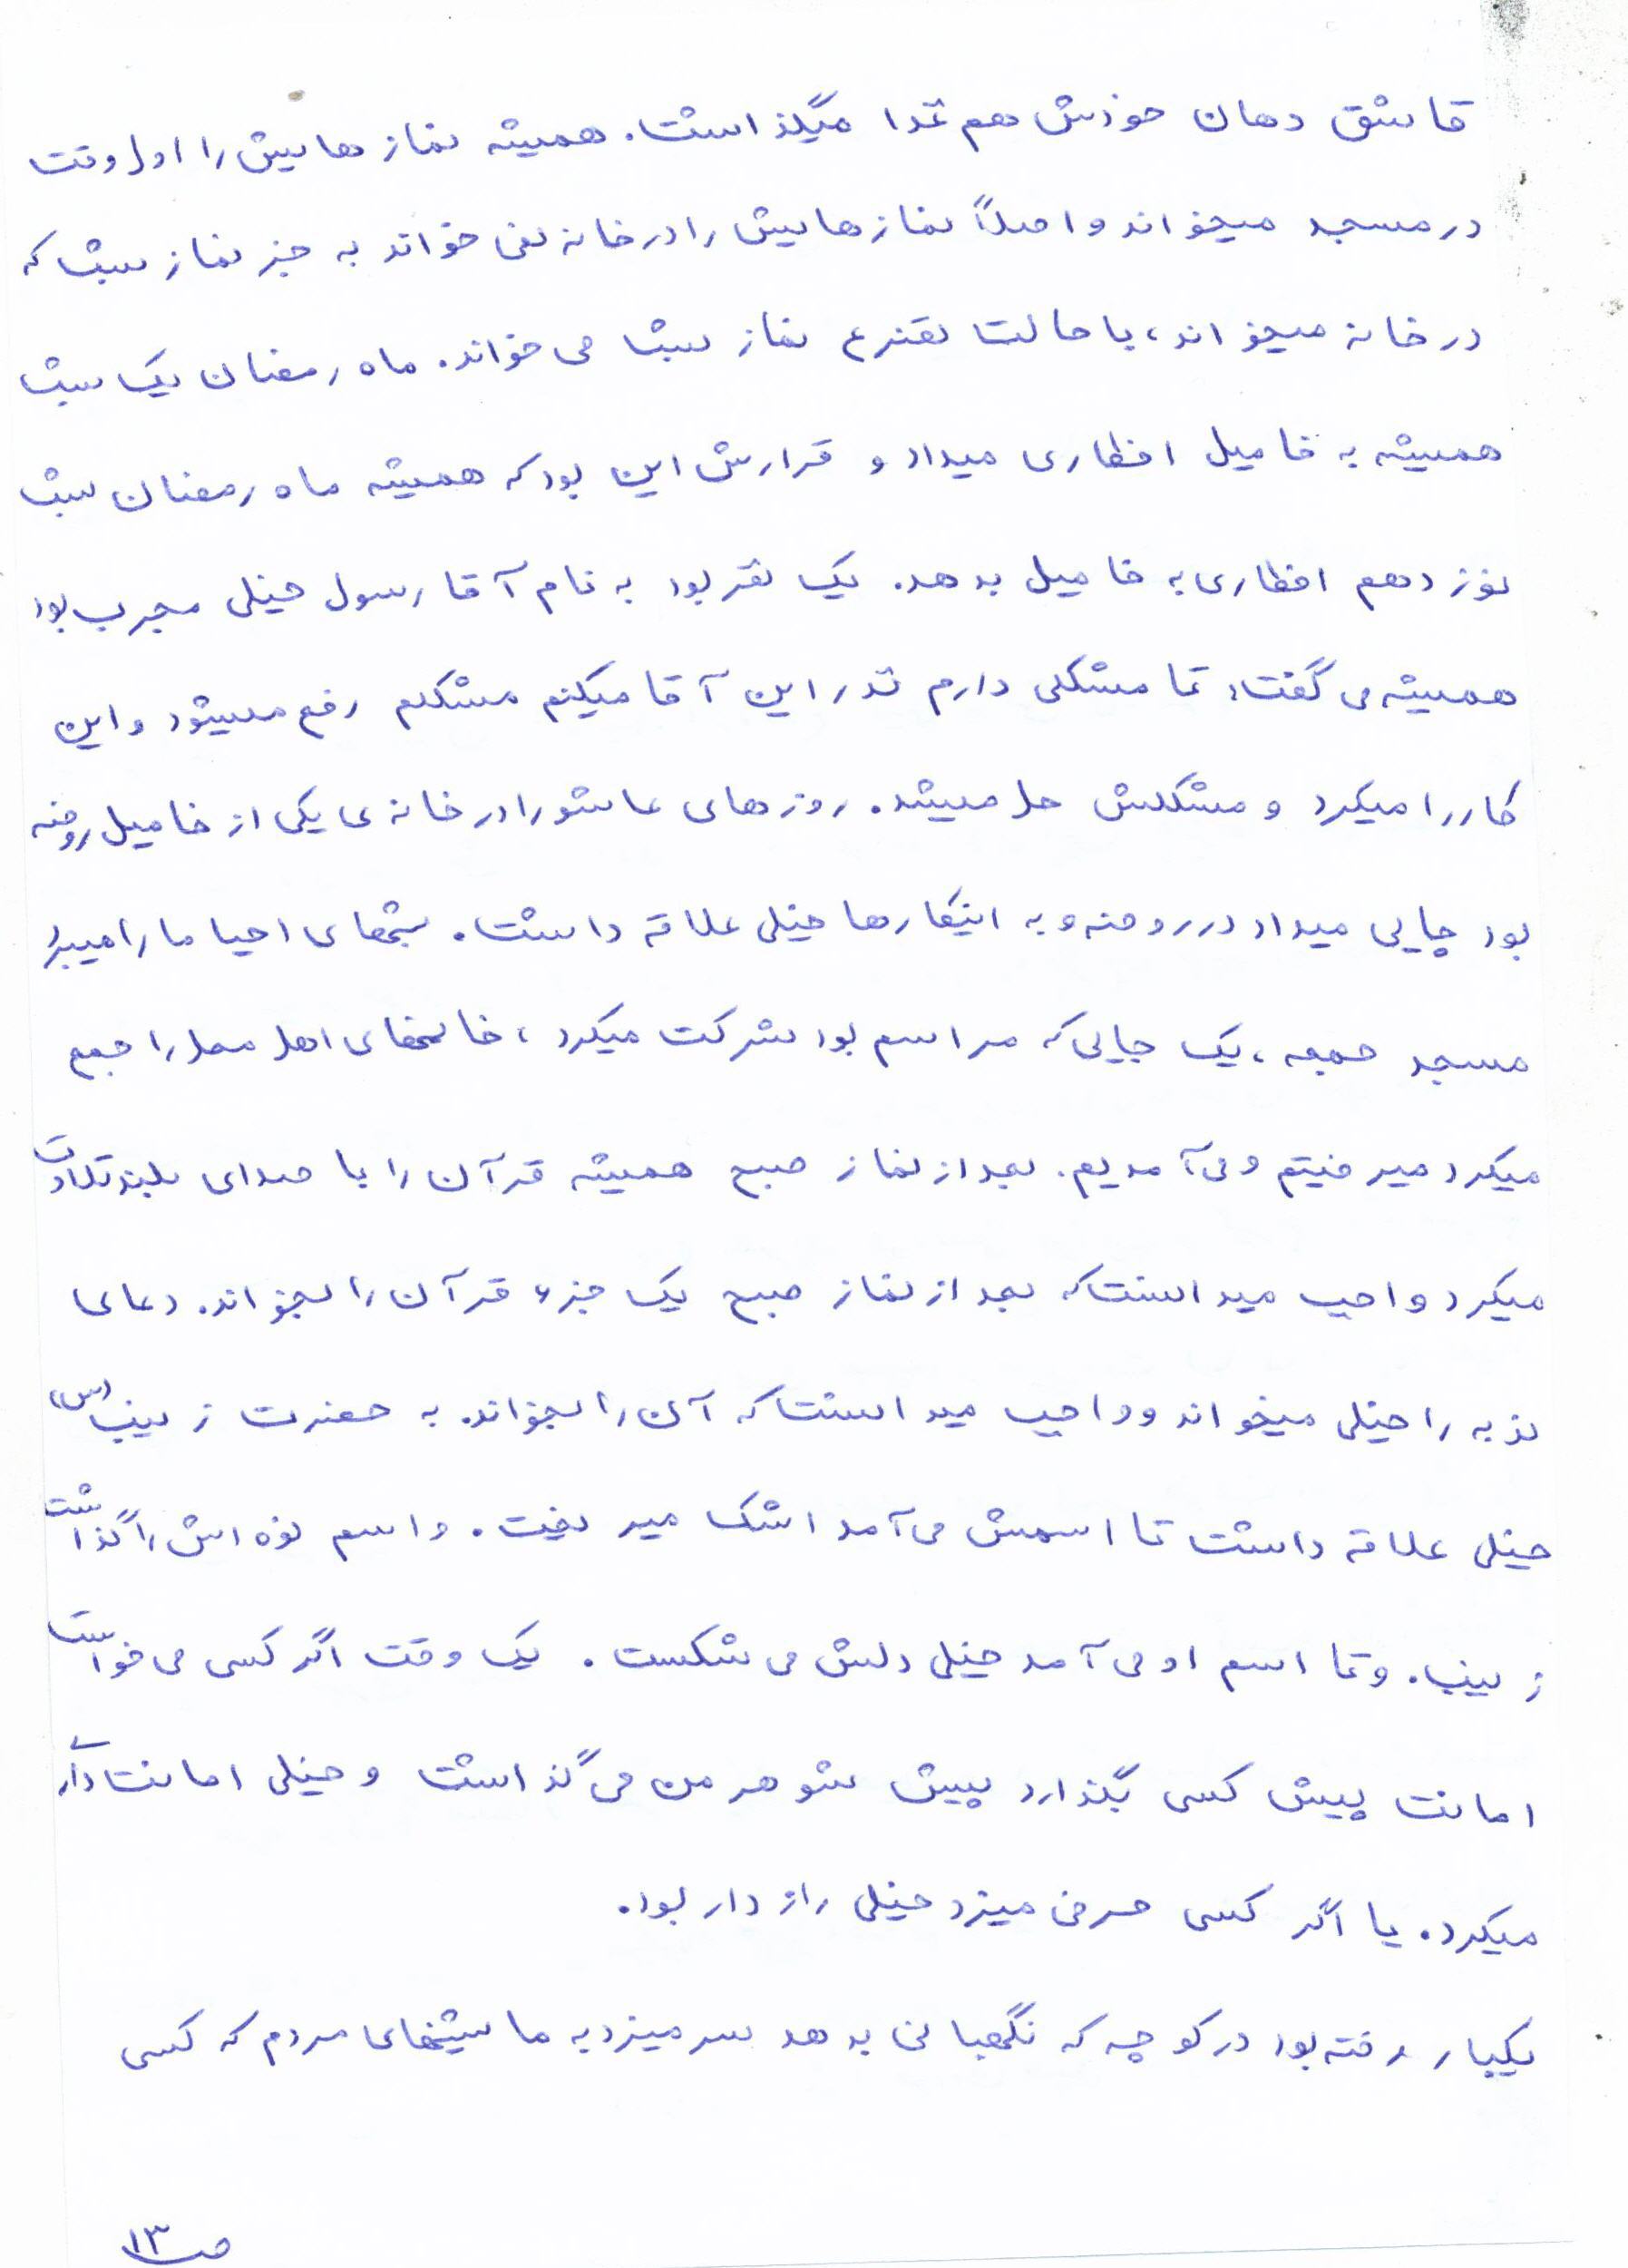 قاشق دهان خودش هم غذا میگذاشت. همیشه نمازهایش را اول وقت
در مسجد میخواند و اصلاً نمازهایش را در خانه نمی خواند به جز نماز شب که
در خانه میخواند، با حالت تضرع نماز شب می خواند. ماه رمضان یک شب
همیشه به فامیل افطاری میداد و قرارش این بود که همیشه ماه رمضان شب
نوزدهم افطاری به فامیل بدهد. یک نفر بود به نام آقا رسول خیلی مجرب بود
همیشه می گفت: تا مشکلی دارم نذر این آقا میکنم مشکلم رفع میشود و این
کار را میکرد و مشکلش حل میشد. روزهای عاشورا در خانه ی یکی از فامیل روضه
بود چایی میداد در روضه و به اینکارها خیلی علاقه داشت. شبهای احیا ما را میبرد
مسجد جمعه، یک جایی که مراسم بود شرکت میکرد، خانمهای اهل محل را جمع
میکرد میرفتیم و می آمدیم. بعد از نماز صبح همیشه قرآن را با صدای بلند تلاوت
میکرد واجب میدانست که بعد از نماز صبح یک جزء قرآن را بخواند. دعای
ندبه را خیلی میخواند و واجب میدانست که آن را بخواند. به حضرت زینب (س)
خیلی علاقه داشت تا اسمش می آمد اشک میریخت. و اسم نوه اش را گذاشت
زینب. و تا اسم او می آمد خیلی دلش می شکست. یک وقت اگر کسی می خواست
امانت پیش کسی بگذارد پیش شوهر من می گذاشت و خیلی امانت داری
میکرد. یا اگر کسی حرفی میزد خیلی راز دار بود.
یکبار رفته بود در کوچه که نگهبانی بدهد سر میزد به ماشینهای مردم که کسی
ص۱۳